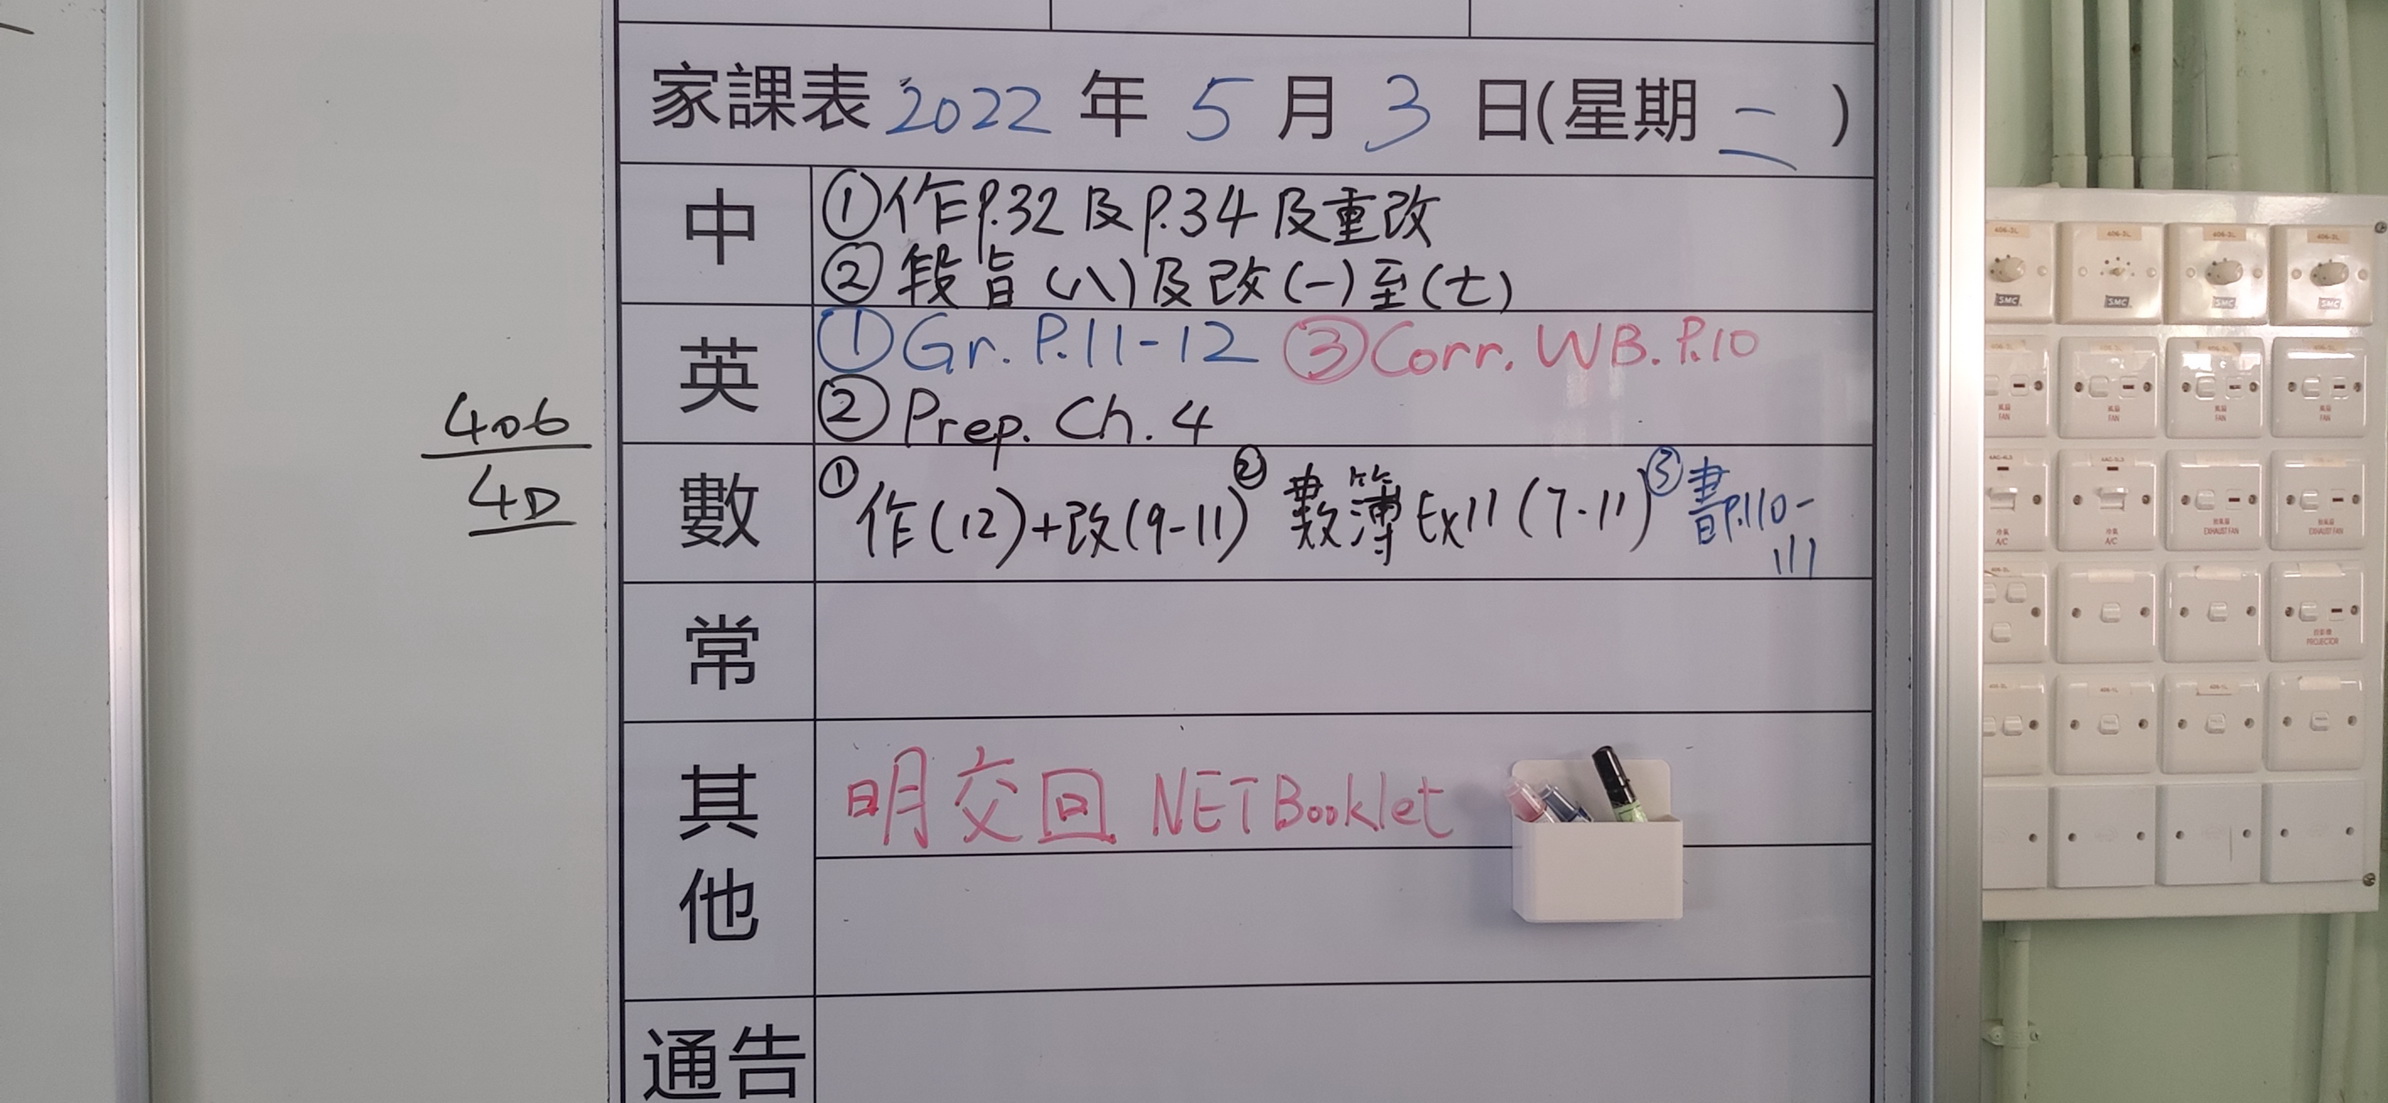 家課表 2022 年 5 月 3 日(星期 二 )
中
①作P.32及P.34及重改
②段旨(八)及改(一)至(七)
英
①Gr. P.11-12 ③Corr. WB. P.10
②Prep. Ch. 4
數
①作(12)+改(9-11) ②數簿 Ex11 (7-11) ③書P.110-
111
常
其他
明交回 NET Booklet
通告
406
4D
SMC SMC SMC SMC
風扇 FAN 風扇 FAN 風扇 FAN 風扇 FAN
冷氣 A/C 冷氣 A/C 抽氣扇 EXHAUST FAN 抽氣扇 EXHAUST FAN
投影機 PROJECTOR